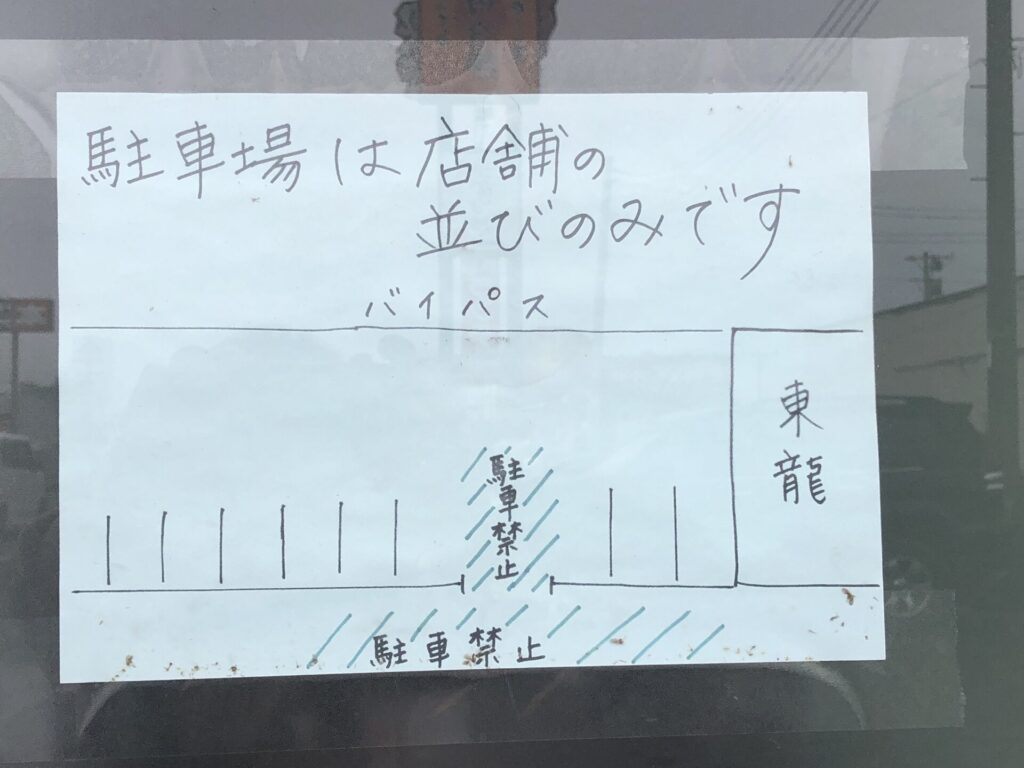 駐車場は店舗の
並びのみです
バイパス
東龍
駐車禁止
駐車禁止